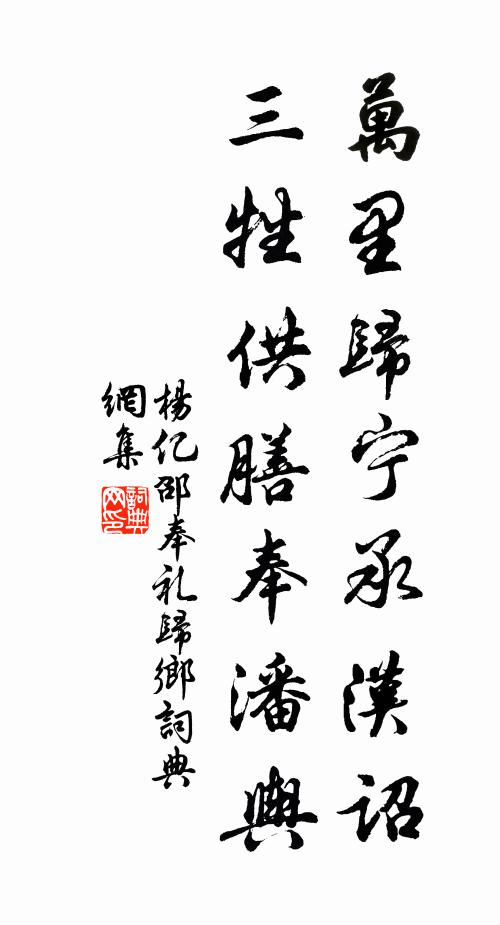 萬里歸宁承漢詔
三牲供膳奉潘輿
楊亿邵奉礼歸鄉詞典
網集
詞典
网印